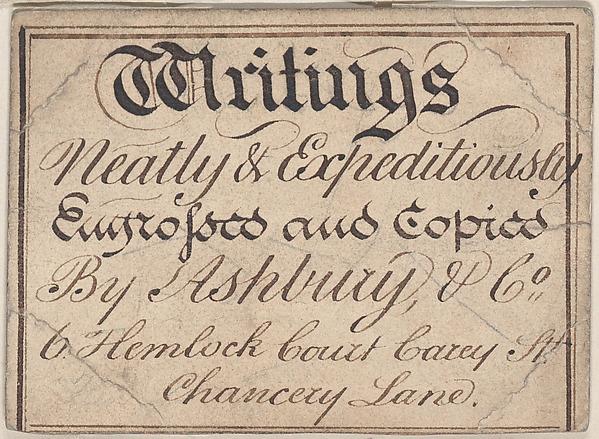 Writings
Neatly & Expeditiously
Engroſsed and Copied
By Ashbury, & Co.
6 Hemlock Court Carey St.
Chancery Lane.